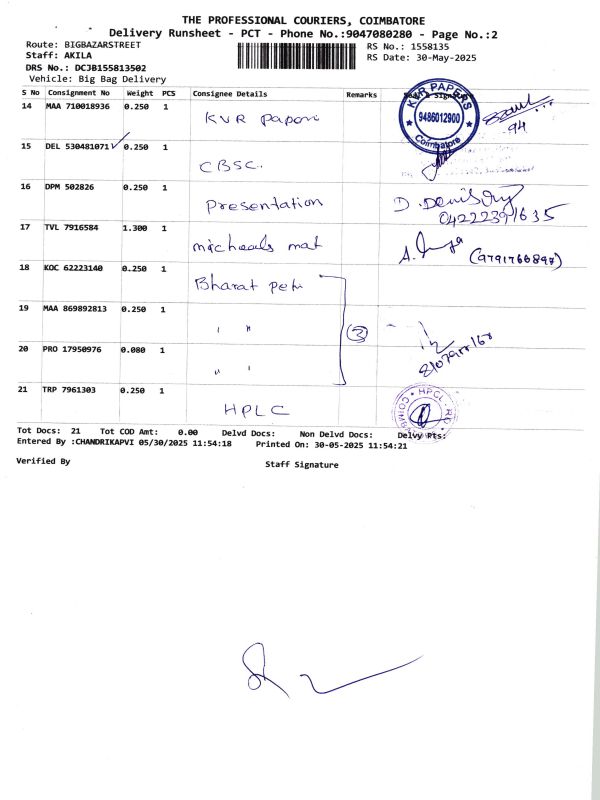 THE PROFESSIONAL COURIERS, COIMBATORE
Delivery Runsheet - PCT - Phone No.:9047080280 - Page No.:2
Route: BIGBAZARSTREET
RS No.: 1558135
Staff: AKILA
RS Date: 30-May-2025
DRS No.: DCJB155813502
Vehicle: Big Bag Delivery
S No Consignment No Weight PCS Consignee Details Remarks
14 MAA 710018936 0.250 1 KVR Papers
KVR PAPERS
9486012900
Coimbatore
94
15 DEL 530481071 0.250 1 CBSC.
16 DPM 502826 0.250 1 Presentation
04222391635
17 TVL 7916584 1.300 1 micheals mat
(9791766897)
18 KOC 62223140 0.250 1 Bharat pet
19 MAA 869892813 0.250 1 " "
3
20 PRO 17950976 0.080 1 " "
21 TRP 7961303 0.250 1 HPLC
HPCL
Tot Docs: 21 Tot COD Amt: 0.00 Delvd Docs: Non Delvd Docs: Delvy Pts:
Entered By :CHANDRIKAPVI 05/30/2025 11:54:18 Printed On: 30-05-2025 11:54:21
Verified By
Staff Signature